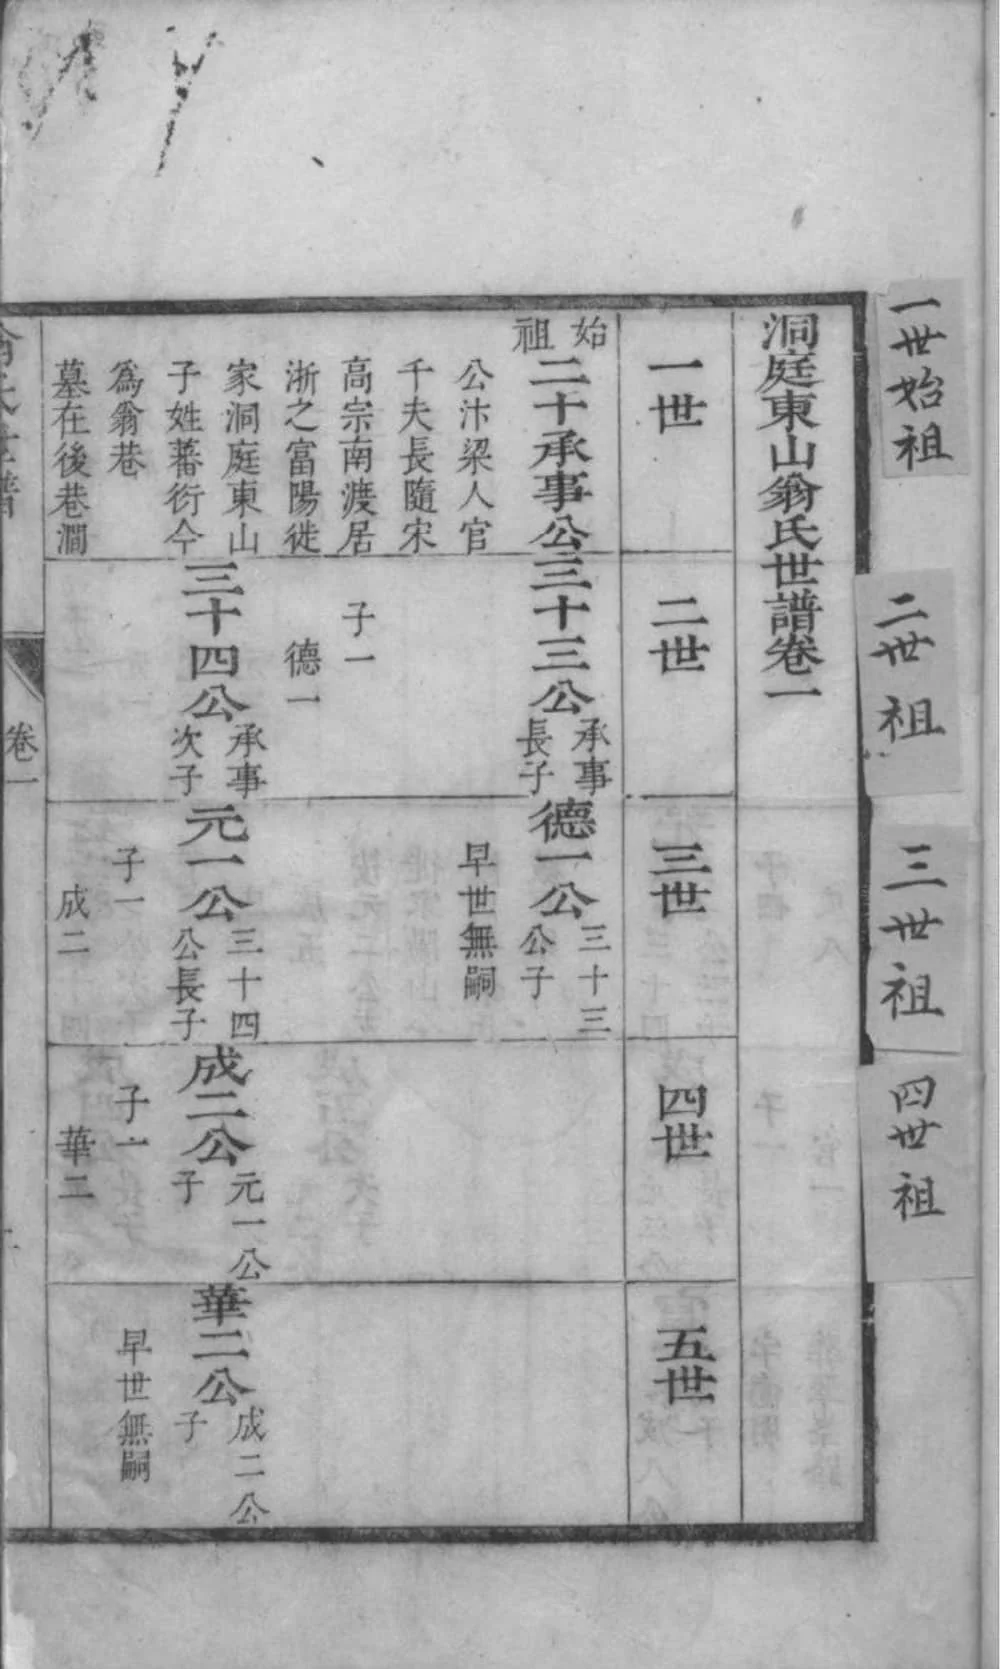 一世始祖
二世祖
三世祖
四世祖
洞庭東山翁氏世譜卷一
一世
二世
三世
四世
五世
始祖
二十承事公
公汴梁人官
千夫長隨宋
高宗南渡居
浙之富陽徙
家洞庭東山
子姓蕃衍今
為翁巷
墓在後巷澗
三十三公
承事
長子
子一
德一
三十四公
承事
次子
德一公
三十三
公子
早世無嗣
元一公
三十四
公長子
子一
成二
成二公
元一公
子
子一
華二
華二公
成二公
子
早世無嗣
翁氏世譜
卷一